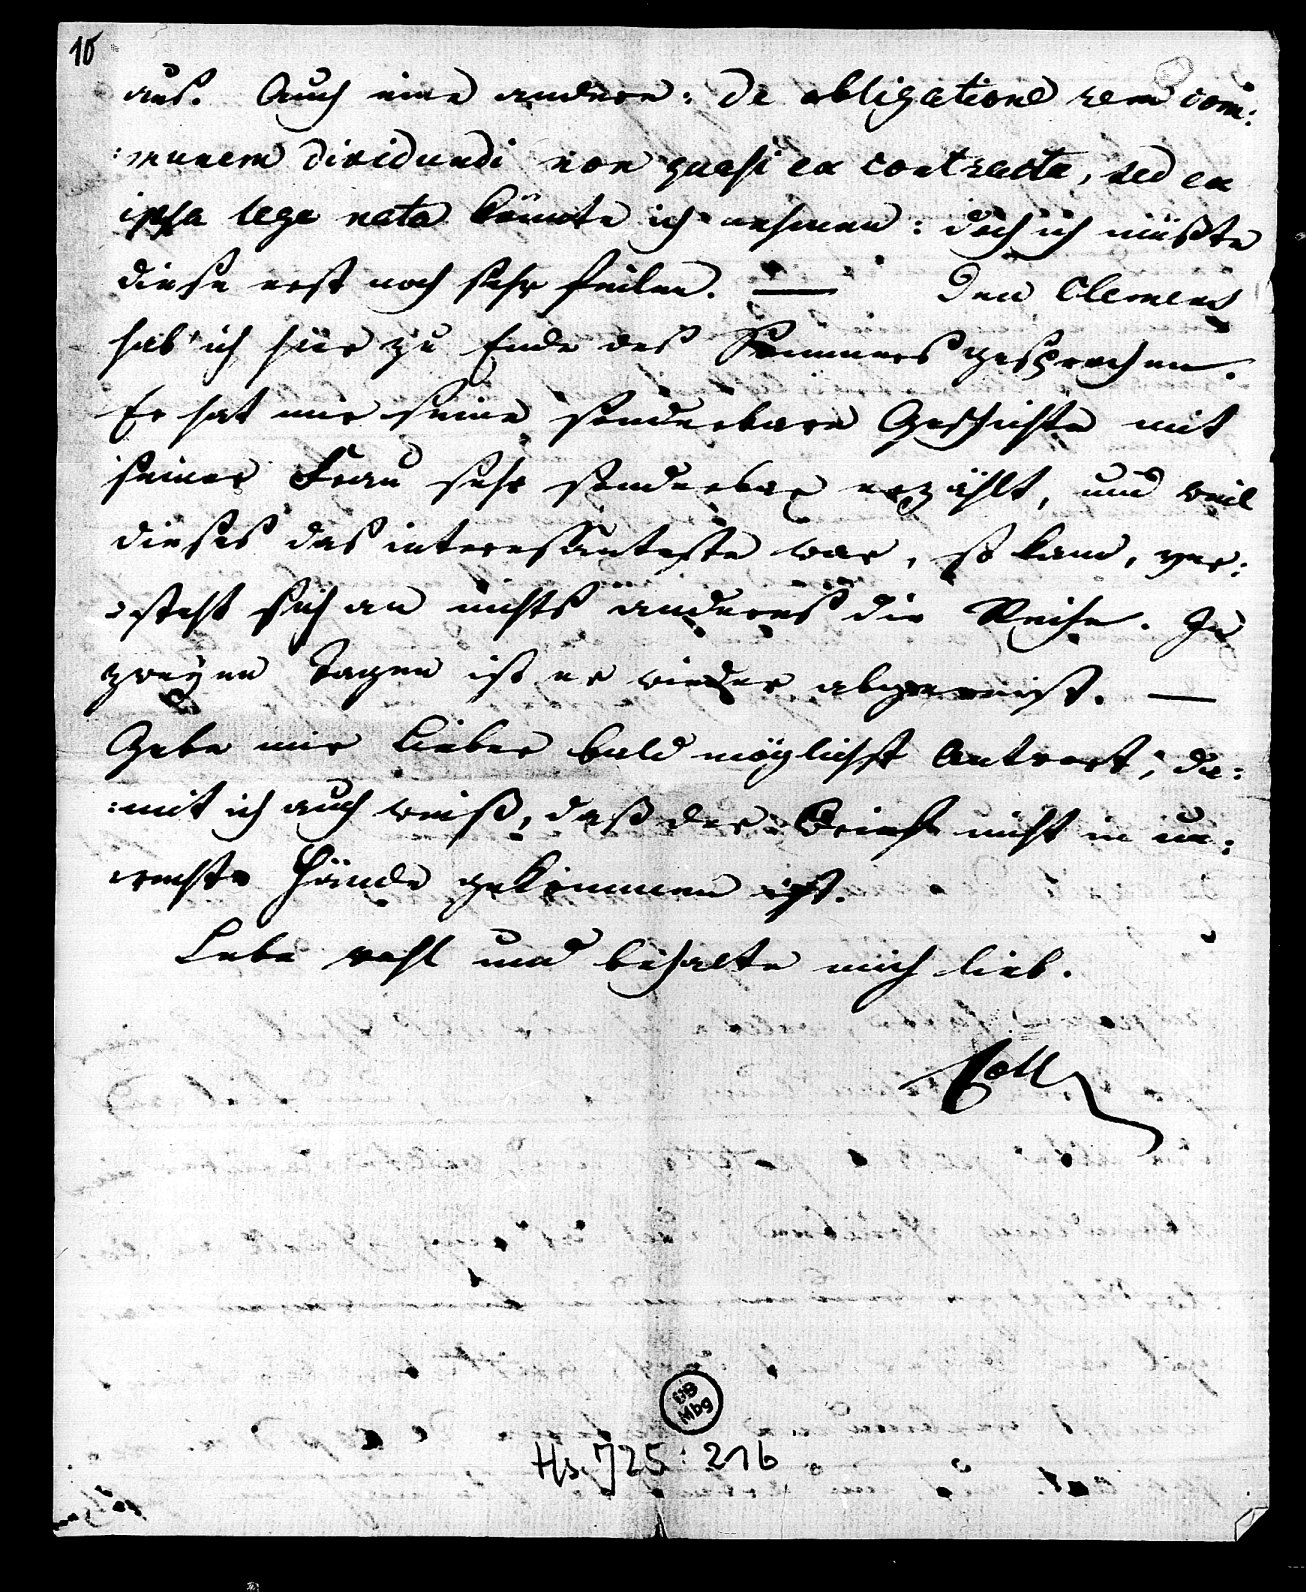 10
aus. Auch eine andere: De obligatione rem com:
:munem dividundi non quasi ex contractu, sed ex
ipsa lege nata könnte ich nehmen: doch ich müßte
diese erst noch sehr feilen. — Den Clemens
hab' ich hier zu Ende des Sommers gesprochen.
Er hat mir seine sonderbare Geschichte mit
seiner Frau sehr sonderbar erzählt, und weil
dieses das interessanteste war, so kam, ver:
:steht sich an nichts anderes die Reihe. In
zweyen Tagen ist er wieder abgereist. —
Gebe mir Lieber bald möglichst Antwort, da:
:mit ich auch weiß, daß der Brief nicht in un:
rechte Hände gekommen ist.
Lebe wohl und behalte mich lieb.
UB
Mbg
Hs. 725: 216